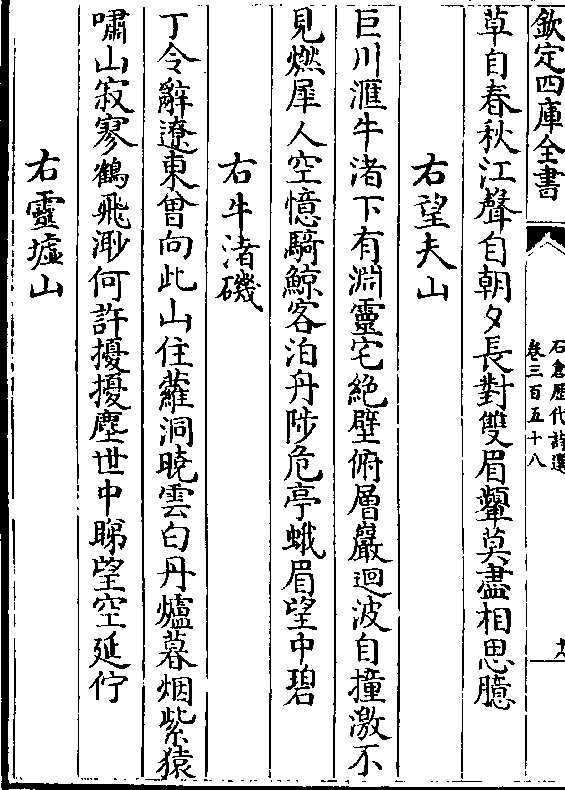 欽定四庫全書
石倉歴代詩選
卷三百五十八
草自春秋江聲自朝夕長對雙眉顰莫盡相思臆
右望夫山
巨川滙牛渚下有淵靈宅絶壁俯層巖迴波自撞激不
見燃犀人空憶騎鯨客泊舟陟危亭蛾眉望中碧
右牛渚磯
丁令辭遼東曽向此山住蘿洞曉雲白丹爐暮烟紫猿
嘯山寂寥鶴飛渺何許擾擾塵世中睇望空延佇
右靈墟山